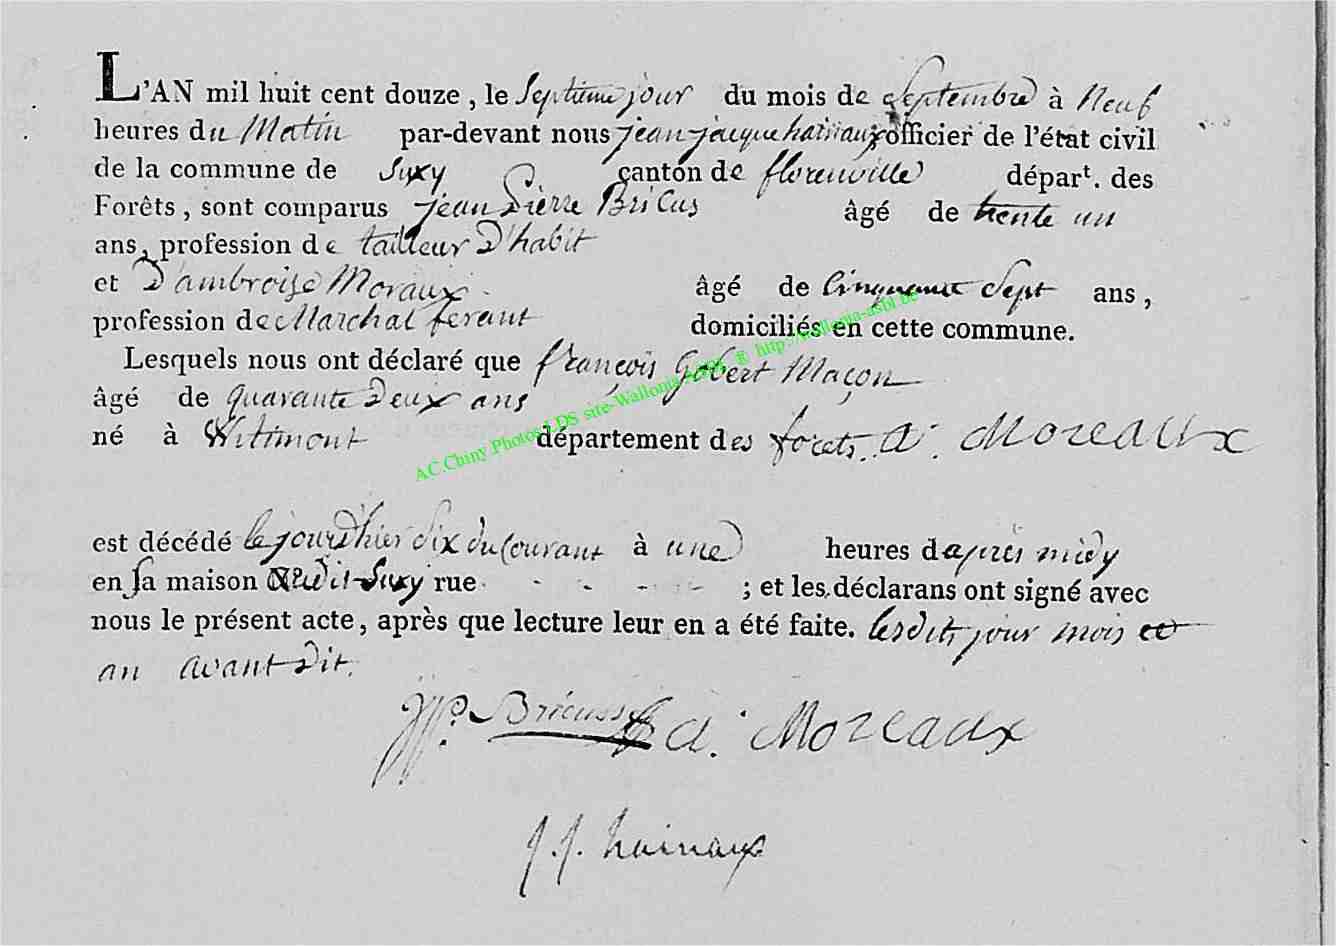 L'AN mil huit cent douze, le Septieme jour du mois de Septembre à Neuf
heures du Matin par-devant nous jean jacque hainaux officier de l'état civil
de la commune de Suxy canton de florenville départ. des
Forêts, sont comparus jean Pierre Bricus âgé de trente un
ans, profession de tailleur D'habit
et D'ambroise Moraux âgé de Cinquante Sept ans,
profession de Marchal ferant domiciliés en cette commune.
Lesquels nous ont déclaré que françois Gobert Maçon
âgé de quarante Deux ans
né à Witimont département des forets. a. Moreaux
AC.Chiny Photos LDS site-Wallonia ® http://wallonia-asbl.be
est décédé le jourdhier Six du Courant à une heures d'après midy
en sa maison Nº dit Suxy rue - - - - ; et les déclarans ont signé avec
nous le présent acte, après que lecture leur en a été faite. lesdits jour mois et
an avant Dit.
JP. Bricusse a. Moreaux
J. J. hainaux